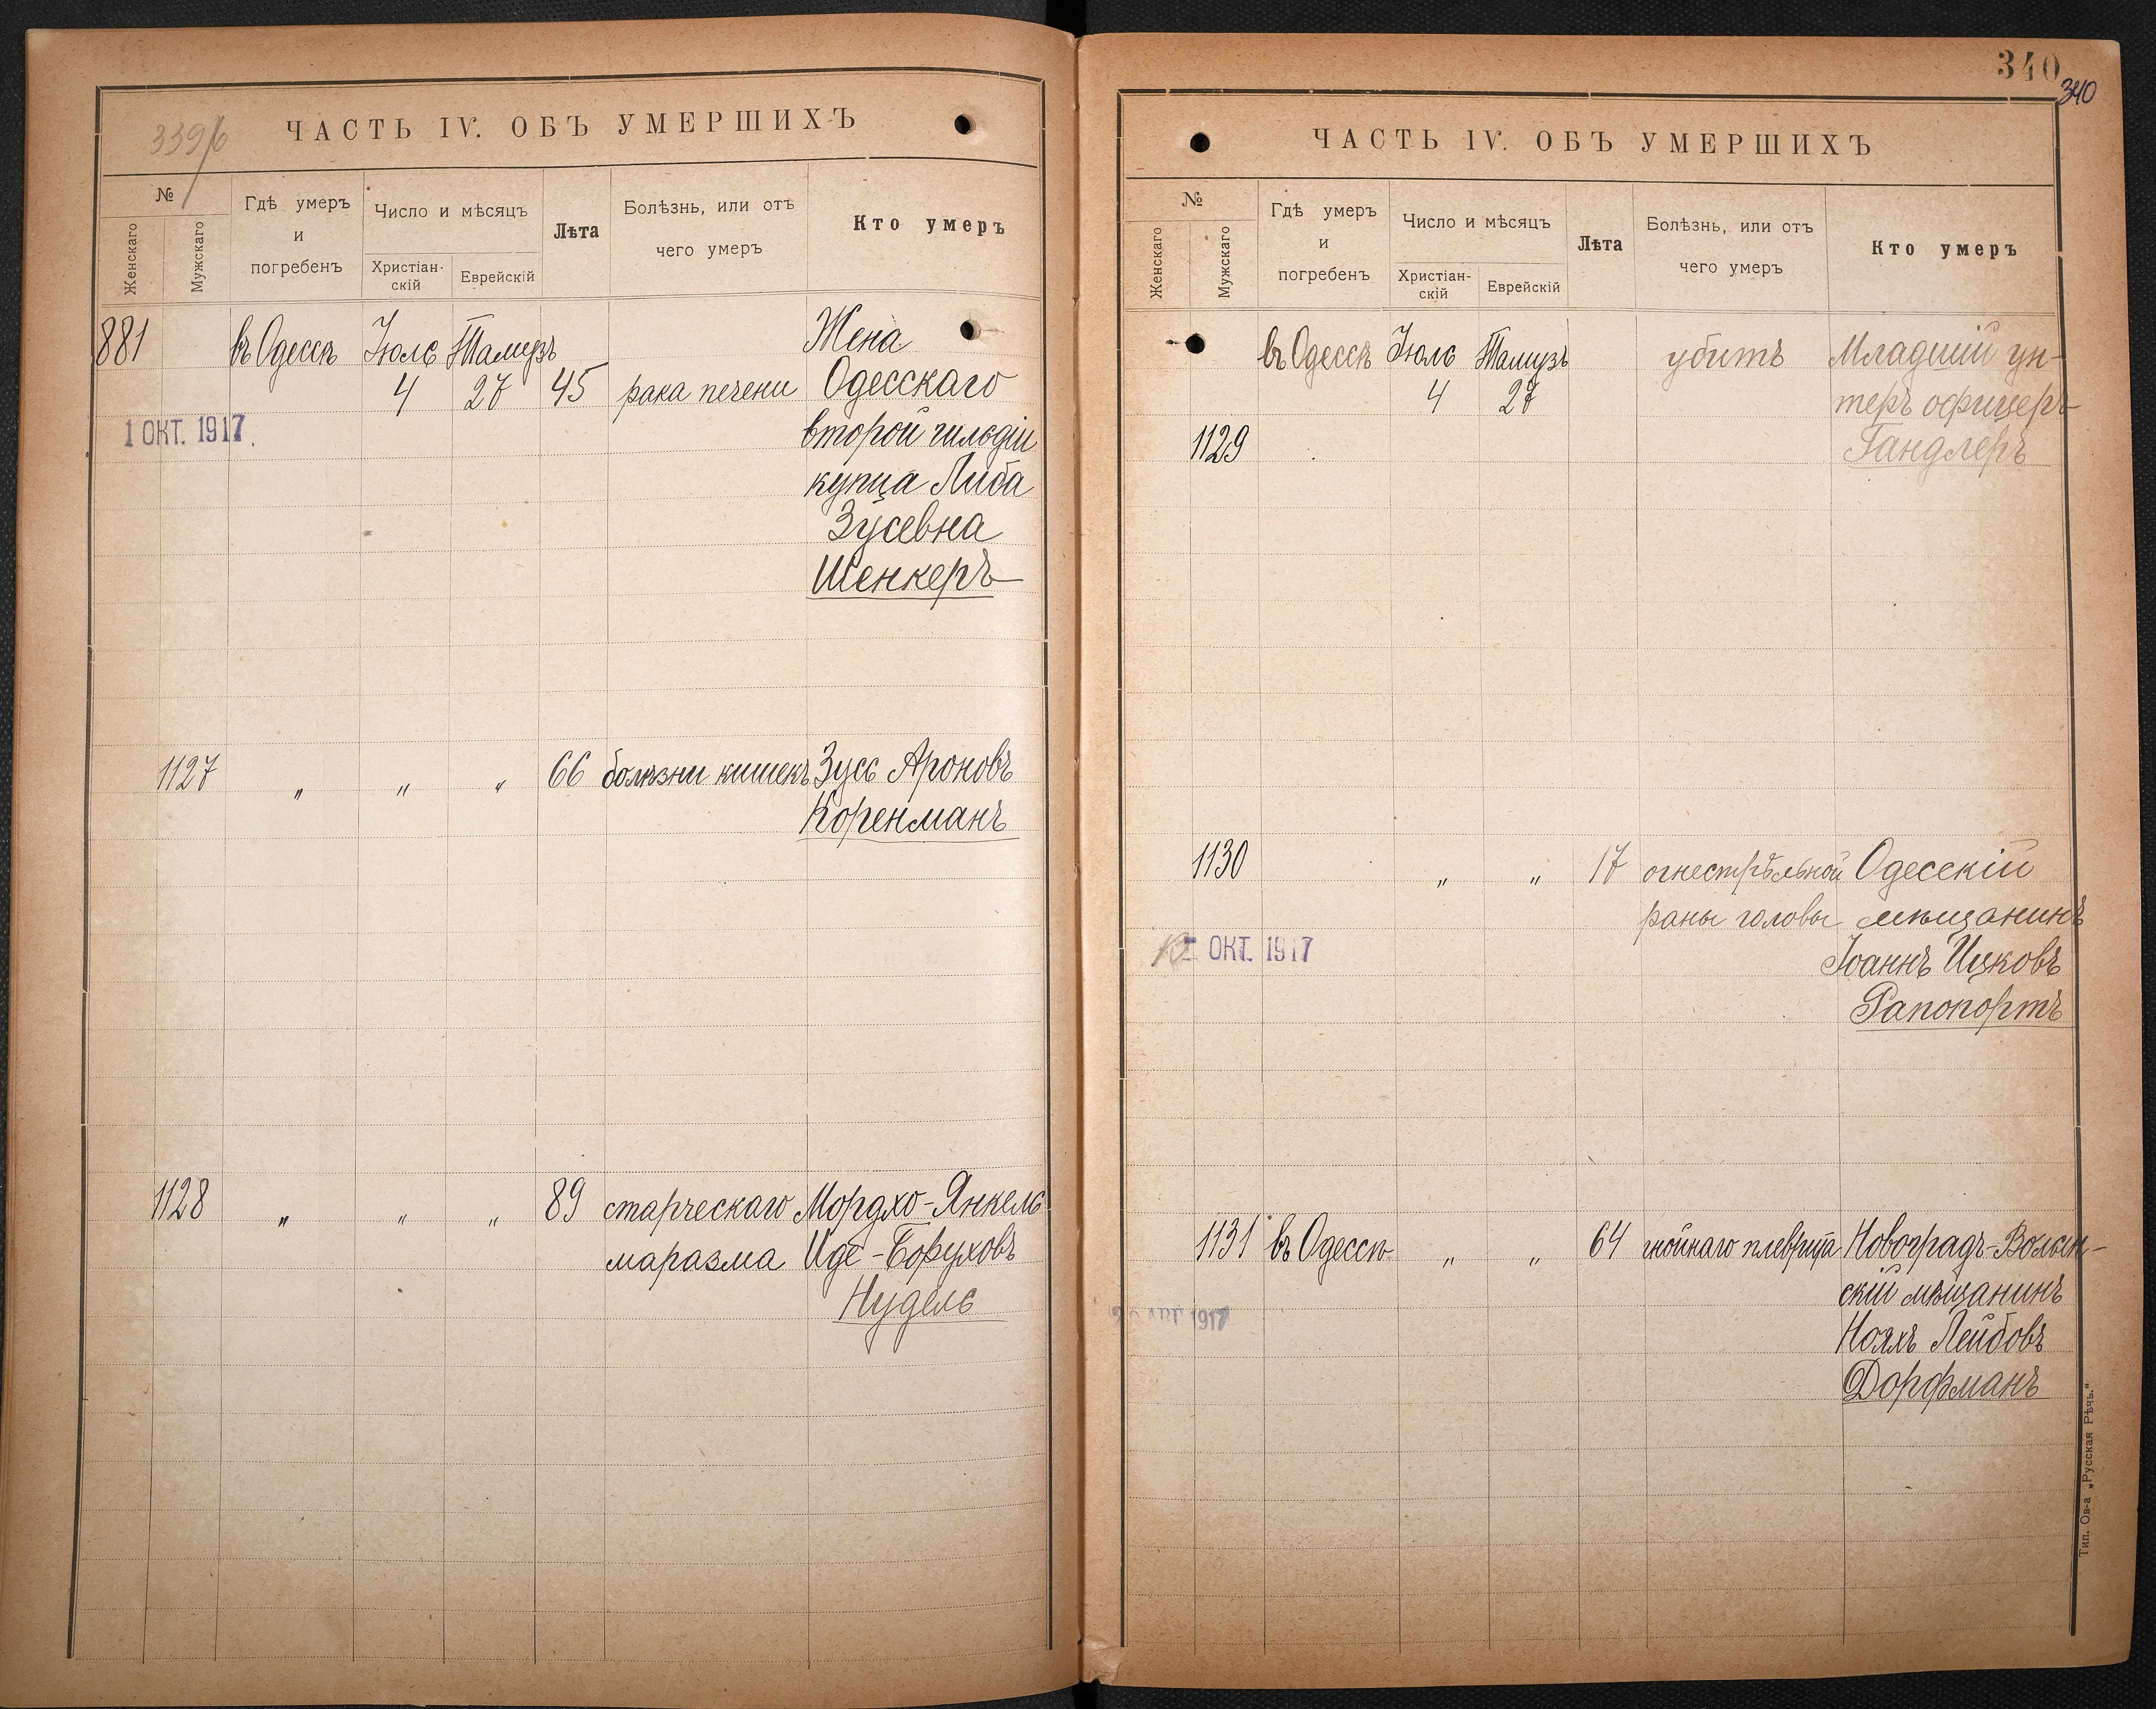 339/б
ЧАСТЬ IV. ОБЪ УМЕРШИХЪ
№
Женскаго
Мужскаго
Гдѣ умеръ
и
погребенъ
Число и мѣсяцъ
Христіан-
скій
Еврейскій
Лѣта
Болѣзнь, или отъ
чего умеръ
Кто умеръ
881 въ Одессѣ Іюль Тамузъ Жена
4 27 45 рака печени Одесскаго
1 ОКТ. 1917. второй гильдіи
купца Либа
Зусевна
Шенкеръ
1127 " " " 66 болѣзни кишекъ Зусь Ароновъ
Коренманъ
1128 " " " 89 старческаго Мордхо-Янкель
маразма Иде-Боруховъ
Нудель
340
340
ЧАСТЬ IV. ОБЪ УМЕРШИХЪ
№
Женскаго
Мужскаго
Гдѣ умеръ
и
погребенъ
Число и мѣсяцъ
Христіан-
скій
Еврейскій
Лѣта
Болѣзнь, или отъ
чего умеръ
Кто умеръ
въ Одессѣ Іюль Тамузъ убитъ Младшій ун-
4 27 теръ офицеръ
1129 Гандлеръ
1130 " " 17 огнестрѣльной Одесскій
раны головы мѣщанинъ
ОКТ. 1917 Іоаннъ Ицковъ
Рапопортъ
1131 въ Одессѣ " " 64 гнойнаго плеврита Новоградъ-Волын-
скій мѣщанинъ
1917 Нояхъ Лейбовъ
Дорфманъ
Тип. Ов-а „Русская Рѣчь."